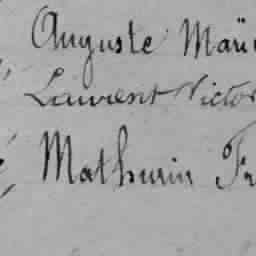 Auguste
Laurent Victor
Mathurin